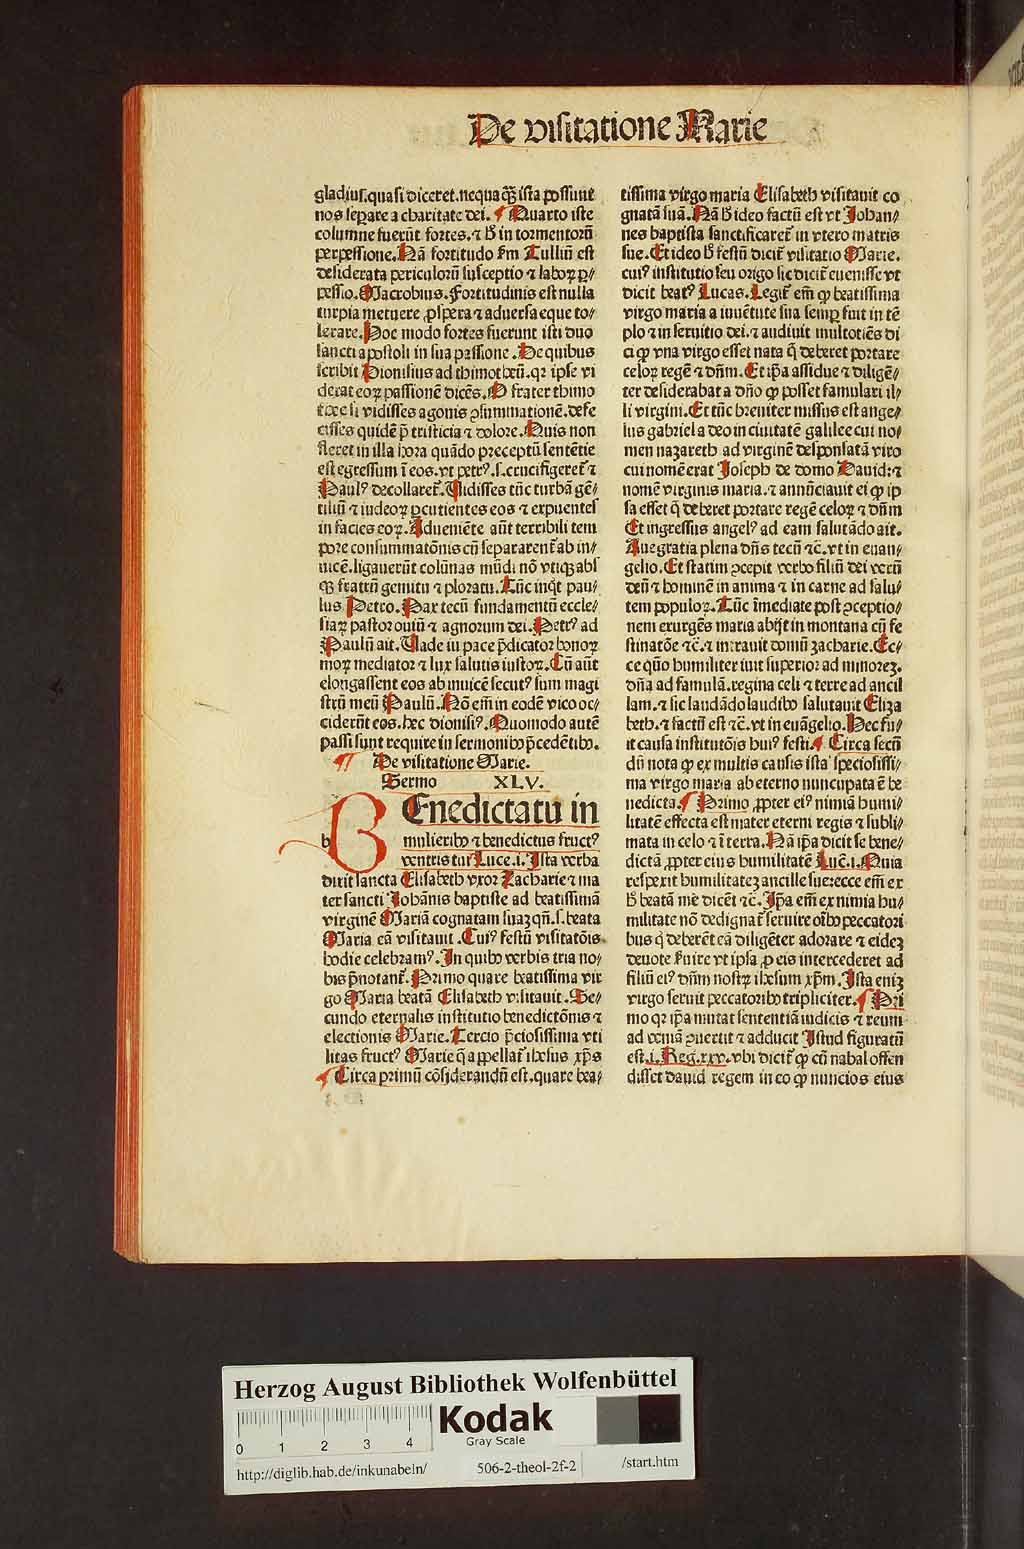 De visitatione Marie
gladius. quasi diceret. nequaqȝ ista possunt
nos separe a charitate dei. ¶ Quarto iste
columne fuerũt fortes. ⁊ hͦ in tormentorũ
perpessione. Nã fortitudo ẜm Tulliũ est
desiderata periculorũ susceptio ⁊ laboꝝ ꝑ-
pessio. Macrobius. Fortitudinis est nulla
turpia metuere ꝓspera ⁊ aduersa eque to-
lerare. Hoc modo fortes fuerunt isti duo
sancti apostoli in sua passione. De quibus
scribit Dionisius ad thimotheũ. qꝛ ipse vi
derat eoꝝ passionẽ dicẽs. O frater thimo
thee si vidisses agonis ꝯsummationẽ. defe
cisses quidẽ p̃ tristicia ⁊ dolore. Quis non
fleret in illa hora quãdo preceptũ sentẽtie
est egressum ĩ eos. vt petrꝰ .s. crucifigereť ⁊
Paulꝰ decollareť. Uidisses tũc turbã gẽ-
tiliũ ⁊ iudeoꝝ ꝑcutientes eos ⁊ expuentes
in facies eoꝝ. Adueniẽte aũt terribili tem
pore consummatõnis cũ separarenť ab in-
uicẽ. ligauerũt colũnas mũdi nõ vtiqȝ absͥ
qȝ fratrũ genutu ⁊ ploratu. Tũc inqͥt pau-
lus Petro. Pax tecũ fundamentũ eccle-
siaꝝ pastor ouiũ ⁊ agnorum dei. Petrꝰ ad
Paulũ ait. Uade in pace p̃dicator bonoꝝ
moꝝ mediator ⁊ lux salutis iustoꝝ. Cũ aũt
elongassent eos ab inuicẽ secutꝰ sum magi
strũ meũ Paulũ. Nõ em̃ in eodẽ vico oc-
ciderũt eos. hec dionisiꝰ. Quomodo autẽ
passi sunt require in sermonibꝰ p̃cedẽtibꝰ.
¶ De visitatione Marie.
Sermo XLV.
BEnedicta tu in
mulieribꝰ ⁊ benedictus fructꝰ
ventris tui Luce .i. Ista verba
dixit sancta Elisabeth vxor Zacharie ⁊ ma
ter sancti Johãnis baptiste ad beatissimã
virginẽ Mariã cognatam suaȝ qñ .s. beata
Maria eã visitauit. Cuiꝰ festũ visitatõis
hodie celebramꝰ. In quibꝰ verbis tria no-
bis p̃notanť. Primo quare beatissima vir
go Maria beatã Elisabeth visitauit. Se-
cundo eternalis institutio benedictõnis ⁊
electionis Marie. Tercio p̃ciosissima vti
litas fructꝰ Marie q̃ appellať ihesus xp̃s
¶ Circa primũ cõsiderandũ est. quare bea-
tissima virgo maria Elisabeth visitauit co
gnatã suã. Nã hͦ ideo factũ est vt Johan-
nes baptista sanctificareť in vtero matris
sue. Et ideo hͦ festũ diciť visitatio Marie.
cuiꝰ institutio seu origo sic diciť euenisse vt
dicit beatꝰ Lucas. Legiť em̃ ꝙ beatissima
virgo maria a iuuẽtute sua semꝑ fuit in tẽ
plo ⁊ in seruitio dei. ⁊ audiuit multotiẽs di
ci ꝙ vna virgo esset nata q̃ deberet portare
celoꝝ regẽ ⁊ dñm. Et ip̃a assidue ⁊ diligẽ-
ter desiderabat a dño ꝙ posset famulari il-
li virgini. Et tũc breuiter missus est ange-
lus gabriel a deo in ciuitatẽ galilee cui no-
men nazareth ad virginẽ desponsatã viro
cui nomẽ erat Joseph de domo Dauid: ⁊
nomẽ virginis maria. ⁊ annũciauit ei ꝙ ip
sa esset q̃ deberet portare regẽ celoꝝ ⁊ dñm
Et ingressus angelꝰ ad eam salutãdo ait.
Aue gratia plena dñs tecũ ⁊c̃. vt in euan-
gelio. Et statim ꝯcepit verbo filiũ dei verũ
deũ ⁊ hominẽ in anima ⁊ in carne ad salu-
tem populoꝝ. Tũc ĩmediate post ꝯceptio-
nem exurgẽs maria abijt in montana cũ fe
stinatõe ⁊c̃. ⁊ intrauit domũ zacharie. Ec-
ce quõ humiliter iuit superior ad minoreȝ.
dña ad famulã. regina celi ⁊ terre ad ancil
lam. ⁊ sic laudãdo laudibꝰ salutauit Eliza
beth. ⁊ factũ est ⁊c̃. vt in euãgelio. Hec fu-
it causa institutõis huiꝰ festi. ¶ Circa secũ
dũ nota ꝙ ex multis causis ista speciosissi-
ma virgo maria ab eterno nuncupata ẽ be
nedicta. ¶ Primo ꝓpter eiꝰ nimiã humi-
litatẽ effecta est mater eterni regis ⁊ subli-
mata in celo ⁊ ĩ terra. Nã ip̃a dicit se bene-
dictã ꝓpter eius humilitatẽ Luc̃ .i. Quia
respexit humilitateȝ ancille sue: ecce em̃ ex
hͦ beatã me dicẽt ⁊c̃. Ip̃a em̃ ex nimia hu-
militate nõ dedignať seruire oĩbꝰ peccatori
bus q̃ deberẽt eã diligẽter adorare ⁊ eideȝ
deuote ẜuire vt ipsa ꝓ eis intercederet ad
filiũ eiꝰ dñm nostꝝ ihesum xp̃m. Ista eniȝ
virgo seruit peccatoribꝰ tripliciter. ¶ Pri
mo qꝛ ip̃a mutat sententiã iudicis ⁊ reum
ad veniã ꝯuertit ⁊ adducit Istud figuratũ
est .i. Reg. xxv. vbi diciť ꝙ cũ nabal offen
disset dauid regem in eo ꝙ nuncios eius
Herzog August Bibliothek Wolfenbüttel
0 1 2 3 4
Kodak
Gray Scale
http://diglib.hab.de/inkunabeln/ 506-2-theol-2f-2 /start.htm